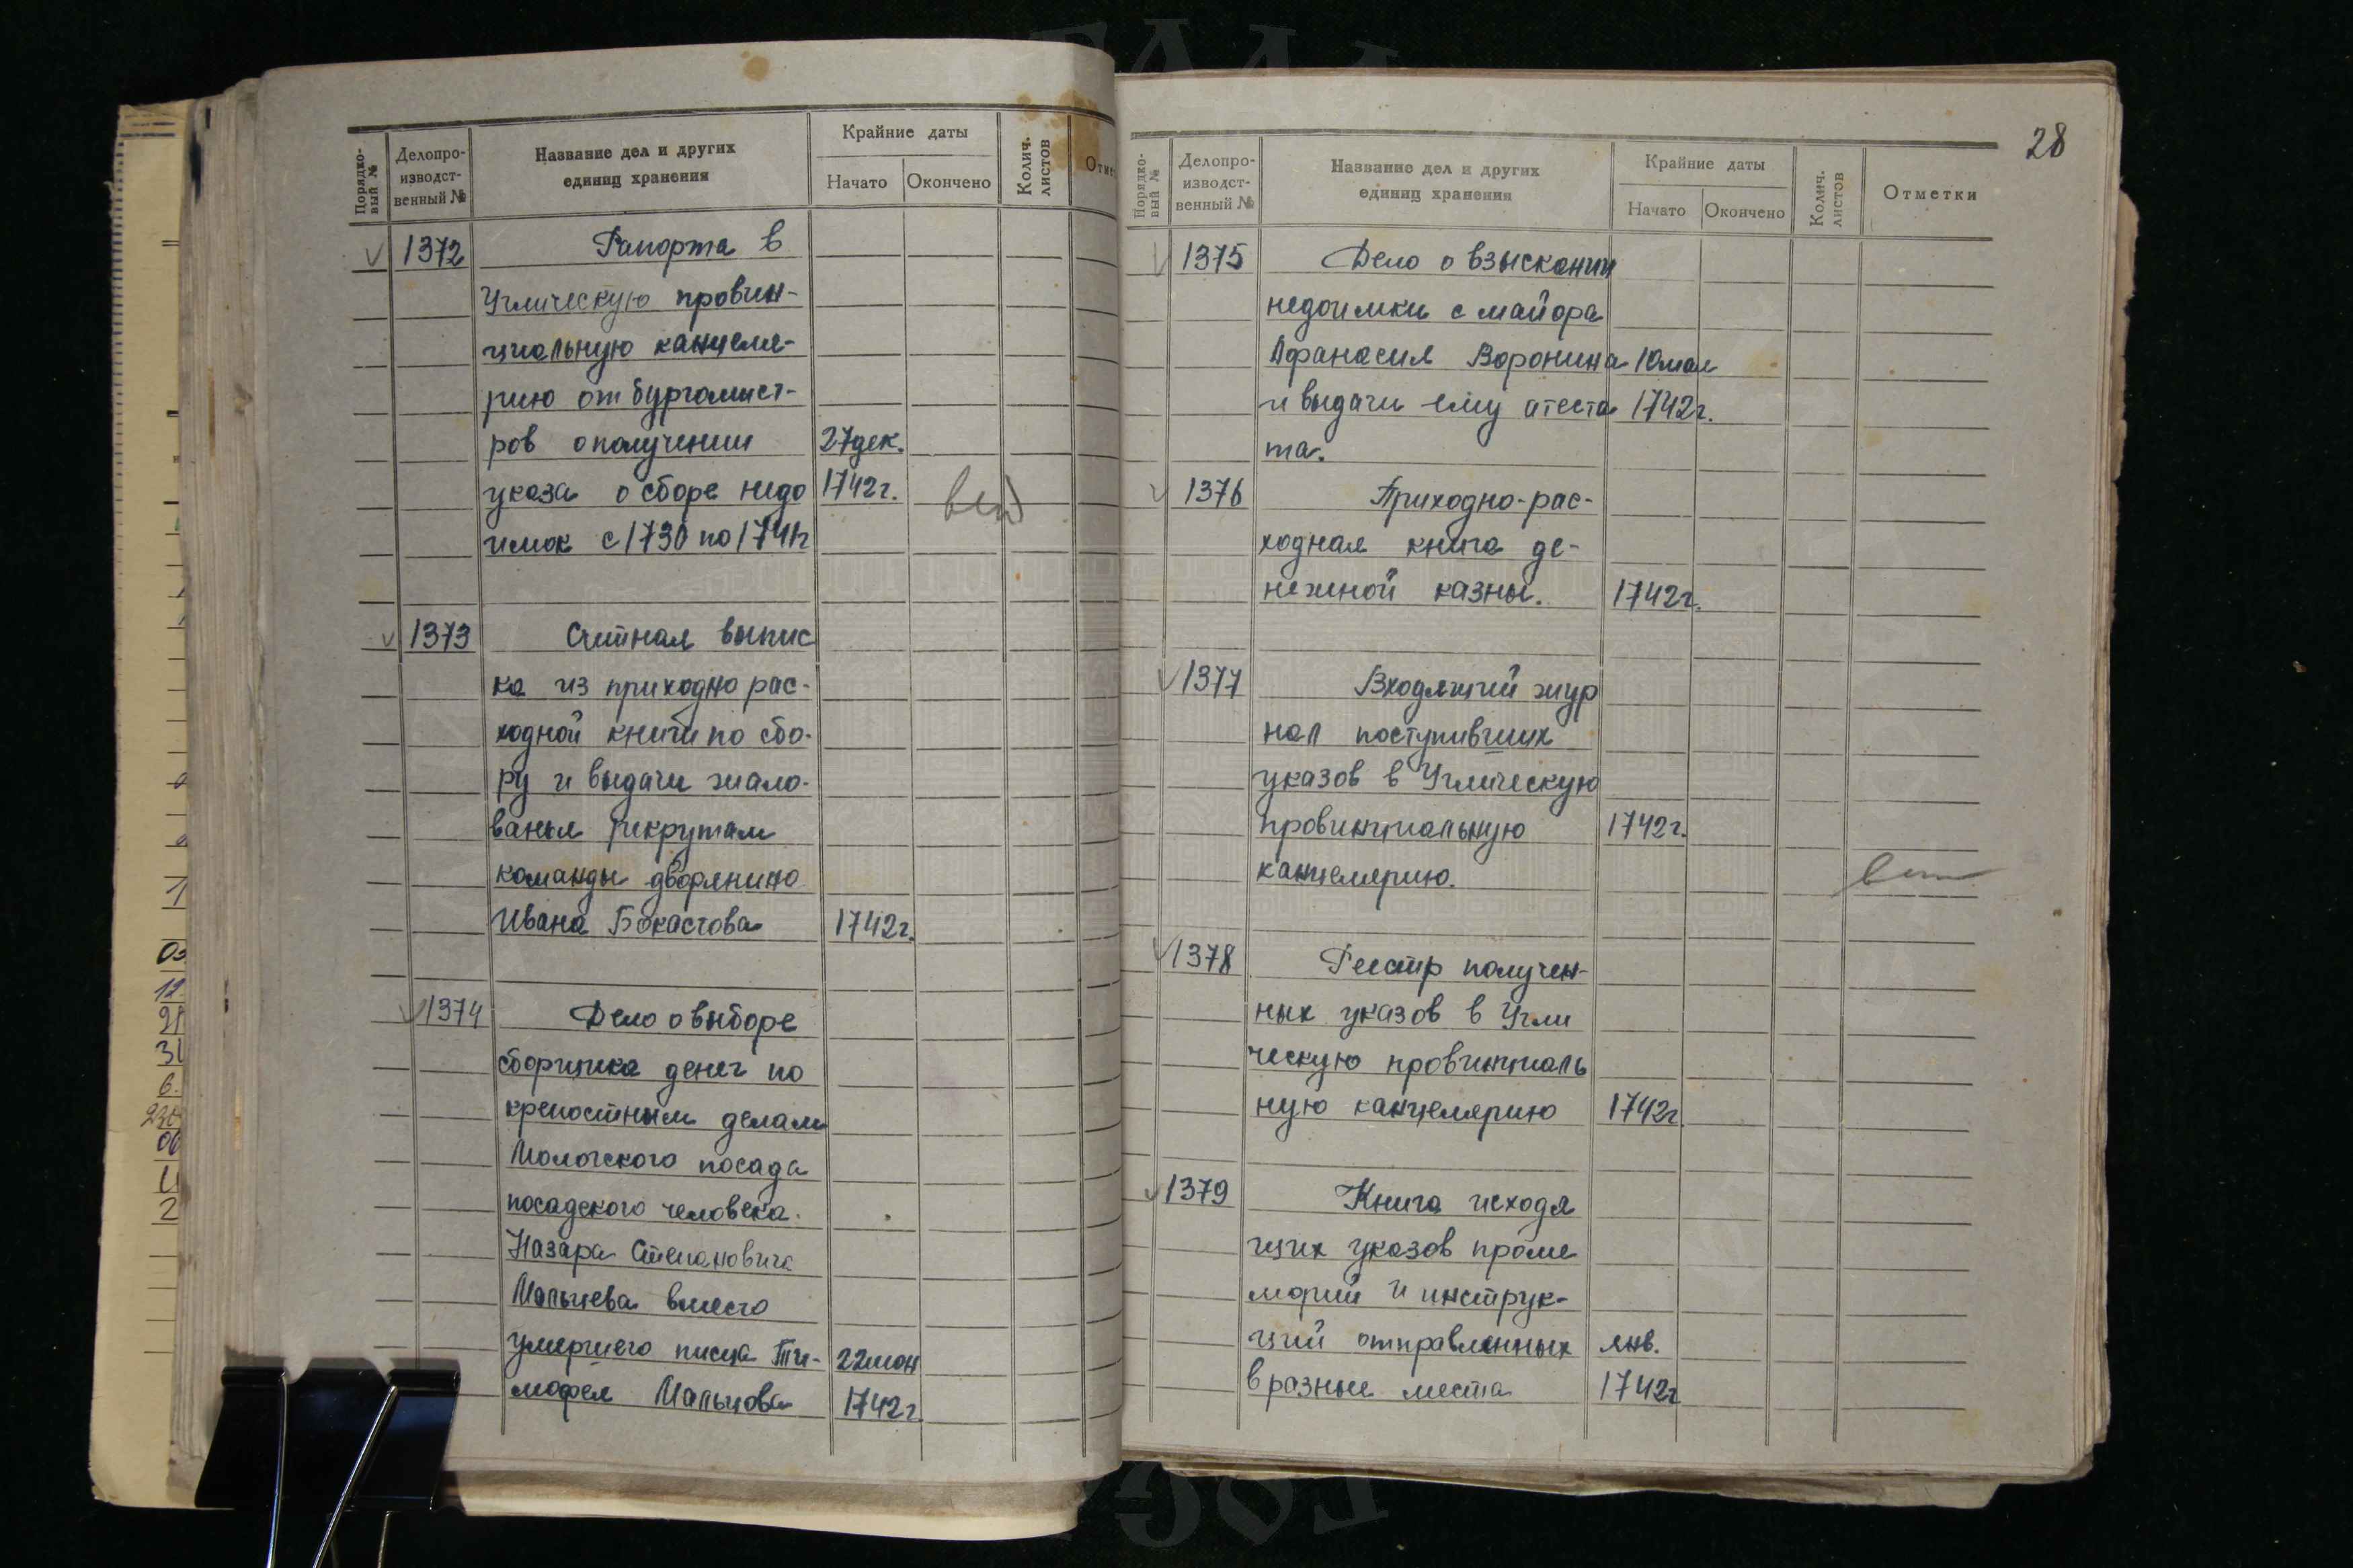 Порядко-
вый №
Делопро-
изводст-
венный №
Название дел и других
единиц хранения
Крайние даты
Начато
Окончено
Колич.
листов
Отме
1372 Рапорта в
Угличскую провин-
циальную канцеля-
рию от бургомист-
ров о получении 27 дек.
указа о сборе недо 1742 г.
имок с 1730 по 1741 г
1373 Счетная выпис
ка из приходно рас-
ходной книги по сбо-
ру и выдачи жало-
ванья рекрутам
команды дворянина
Ивана 1742 г.
1374 Дело о выборе
сборщика денег по
крепостным делам
Мологского посада
посадского человека
Назара Степановича
Мальцева вместо
умершего писца Ти- 22 июн
мофея Мальцова 1742 г
28
Порядко-
вый №
Делопро-
изводст-
венный №
Название дел и других
единиц хранения
Крайние даты
Начато
Окончено
Колич.
листов
Отметки
1375 Дело о взыскании
недоимки с майора
Афанасия Воронина 10 мая
и выдачи ему атеста 1742 г.
та.
1376 Приходно-рас-
ходная книга де-
нежной казны. 1742 г.
1377 Входящий жур
нал поступивших
указов в Угличскую
провинциальную 1742 г.
канцелярию.
1378 Реестр получен-
ных указов в Угли
ческую провинциаль
ную канцелярию 1742 г
1379 Книга исходя
щих указов проме
морий и инструк-
ций отправленных янв.
в разные места 1742 г